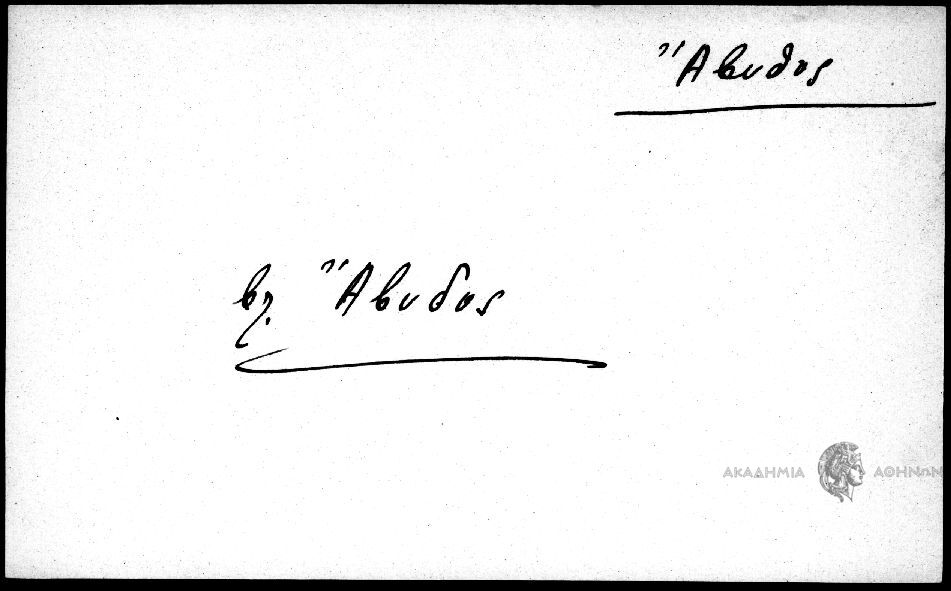 Ἄβυθος
βλ. Ἄβυδος
ΑΚΑΔΗΜΙΑ ΑΘΗΝΩΝ